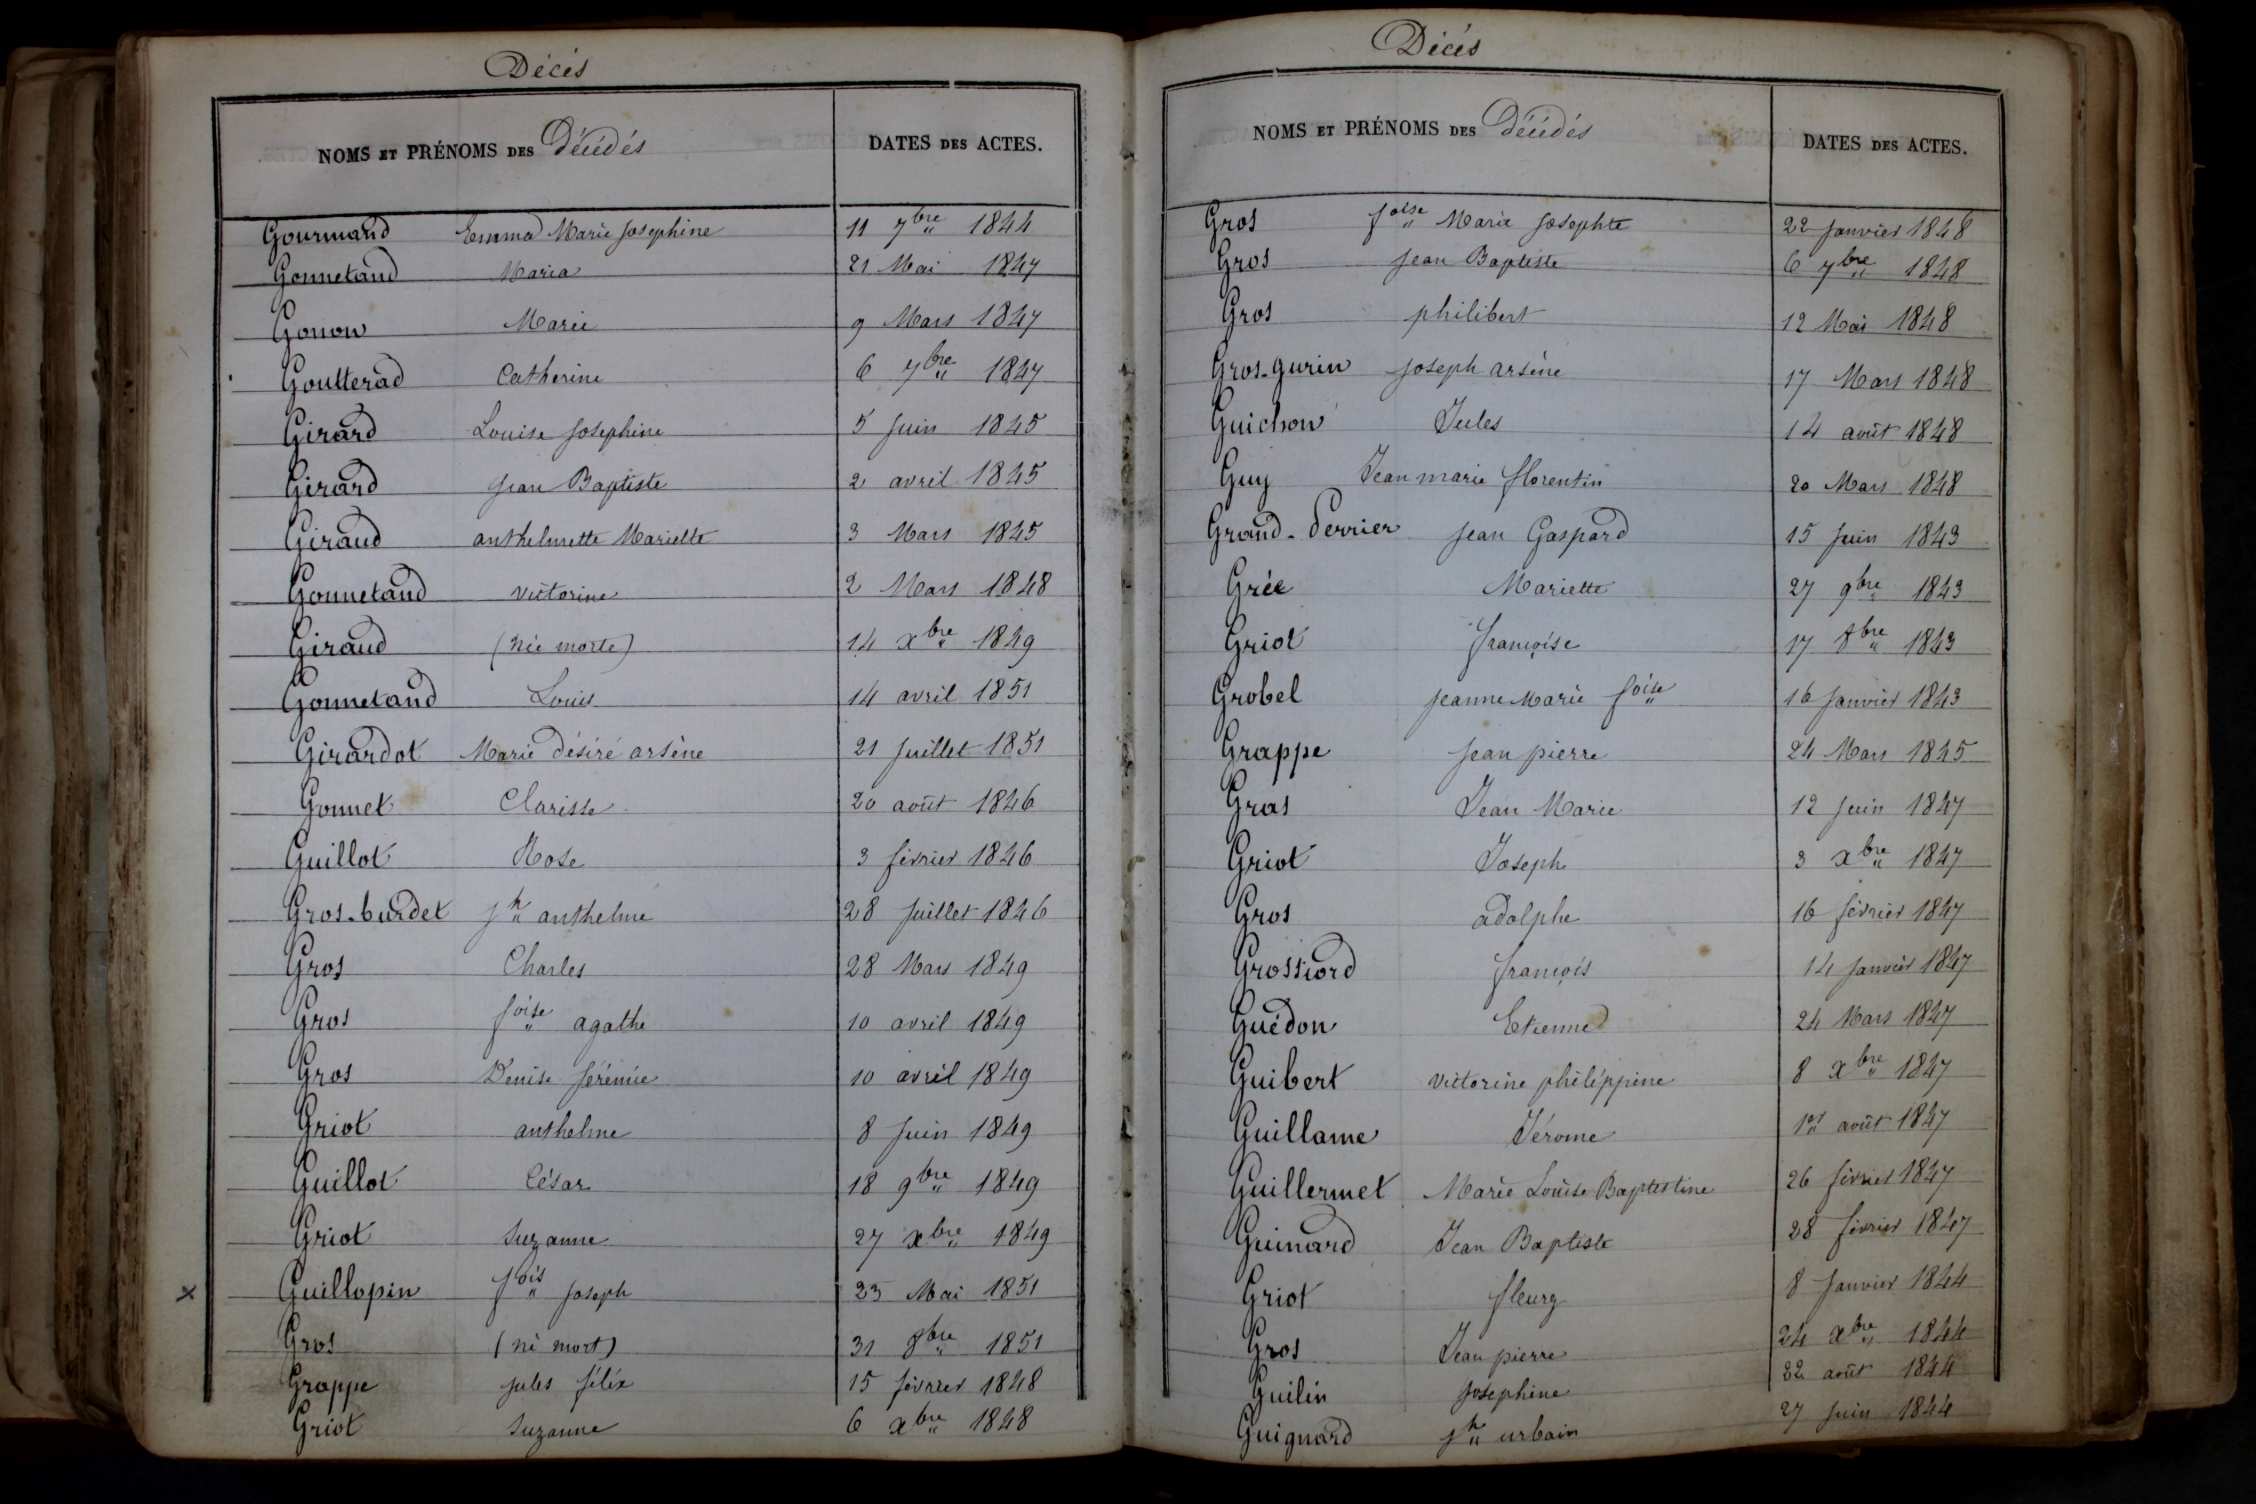 Décès
NOMS ET PRÉNOMS DES Décédés DATES DES ACTES.
Gourmand Emma Marie Josephine 11 7bre 1844
Gonnetand Maria 21 Mai 1847
Gonon Marie 9 Mars 1847
Goutterad Catherine 6 7bre 1847
Girard Louise Josephine 5 Juin 1845
Girard Jean Baptiste 2 avril 1845
Giraud anthelmette Mariette 3 Mars 1845
Gonnetand victorine 2 Mars 1848
Giraud (née morte) 14 xbre 1849
Gonnetand Louis 14 avril 1851
Girardot Marie désiré arsène 21 Juillet 1851
Gonnet Clarisse 20 août 1846
Guillot Rose 3 février 1846
Gros-burdet Jh anthelme 28 Juillet 1846
Gros Charles 28 Mars 1849
Gros foise agathe 10 avril 1849
Gros Denise férémie 10 avril 1849
Griot anthelme 8 Juin 1849
Guillot César 18 9bre 1849
Griot Suzanne 27 xbre 1849
x Guillopin fois Joseph 23 Mai 1851
Gros (né mort) 31 8bre 1851
Grappe Jules félix 15 février 1848
Griot Suzanne 6 xbre 1848
Décés
NOMS ET PRÉNOMS DES Décédés DATES DES ACTES.
Gros foise Marie Josephte 22 Janvier 1848
Gros Jean Baptiste 6 7bre 1848
Gros philibert 12 Mai 1848
Gros-gurin Joseph arsène 17 Mars 1848
Guichon Jules 14 août 1848
Guy Jean marie florentin 20 Mars 1848
Grand-Perrier Jean Gaspard 15 Juin 1843
Grée Mariette 27 9bre 1843
Griot françoise 17 8bre 1843
Grobel Jeanne Marie foise 16 Janvier 1843
Grappe Jean pierre 24 Mars 1845
Gras Jean Marie 12 Juin 1847
Griot Joseph 3 xbre 1847
Gros adolphe 16 février 1847
Grossiord françois 14 Janvier 1847
Guédon Etienne 24 Mars 1847
Guibert victorine philippine 8 xbre 1847
Guillame Jérome 1er août 1847
Guillermet Marie Louise Baptistine 26 février 1847
Guinard Jean Baptiste 28 février 1847
Griot fleury 8 Janvier 1844
Gros Jean pierre 24 xbre 1844
Guilin Josephine 22 août 1844
Guignard Jh urbain 27 Juin 1844